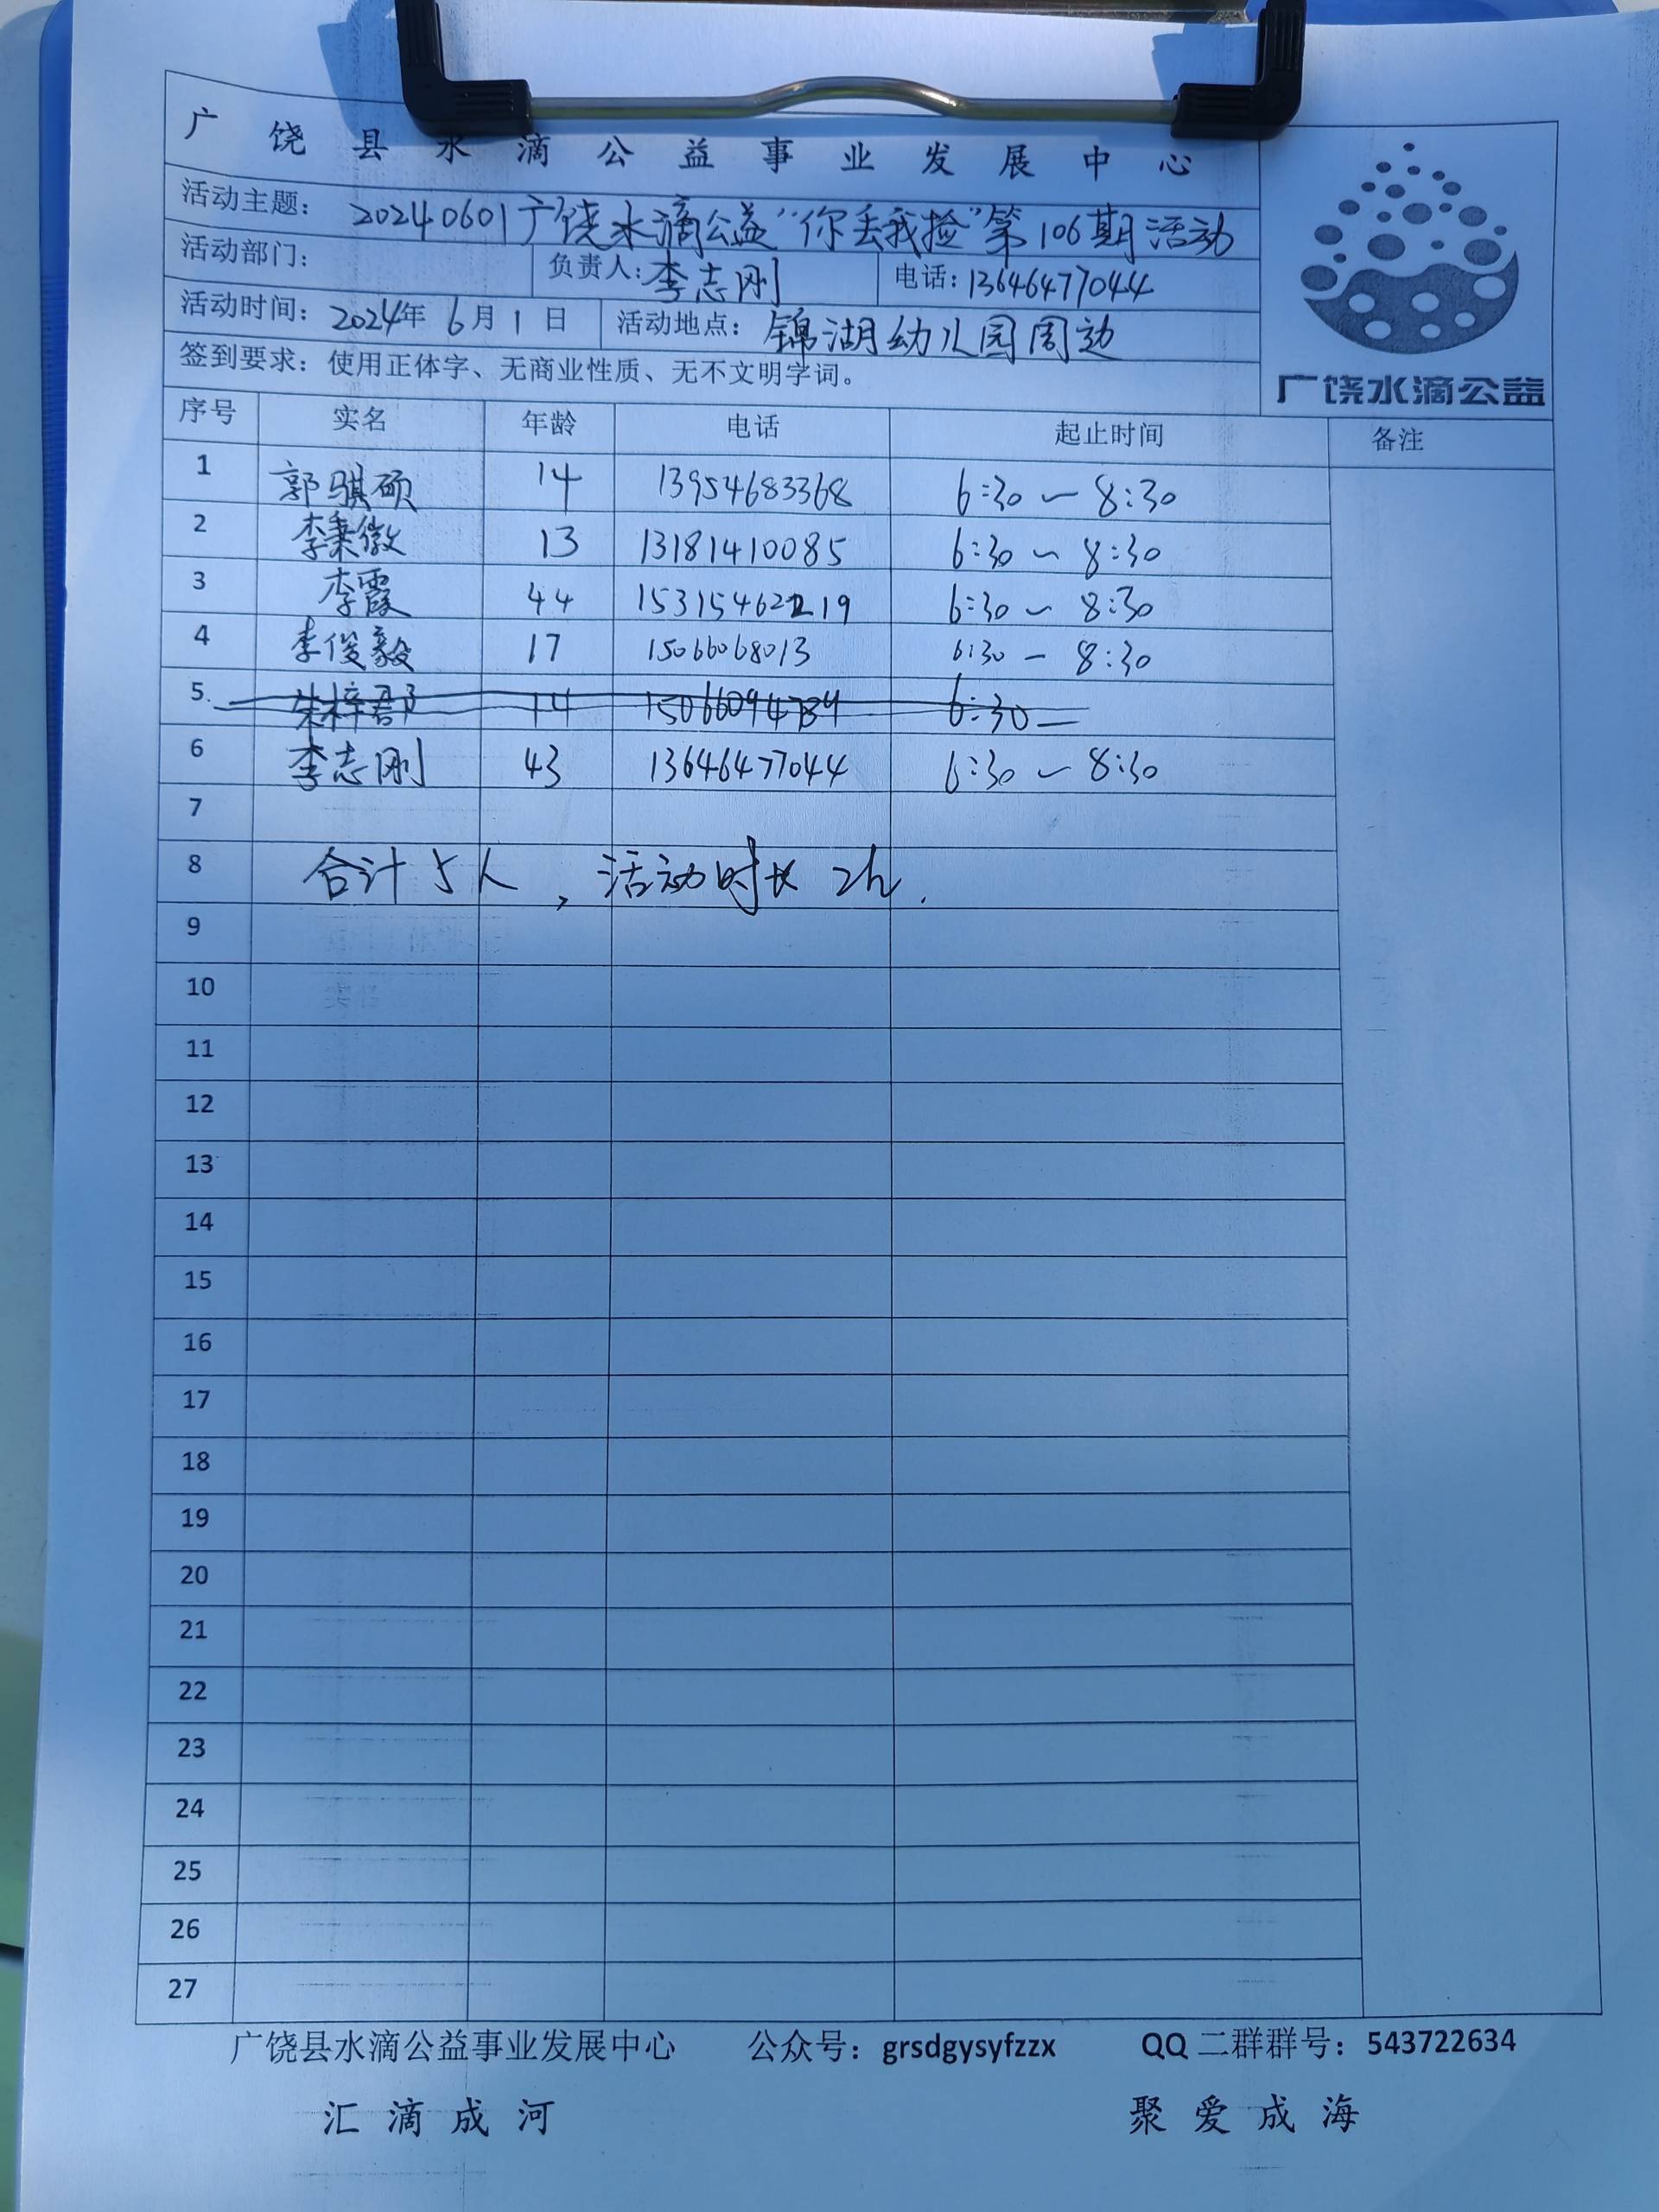 广饶县水滴公益事业发展中心
活动主题: 20240601广饶水滴公益“你丢我捡”第106期活动
活动部门: 负责人: 李志刚 电话: 13646477044
活动时间: 2024年 6月 1 日 活动地点: 锦湖幼儿园周边
签到要求: 使用正体字、无商业性质、无不文明字词。
广饶水滴公益
序号 实名 年龄 电话 起止时间 备注
1 郭骐硕 14 13954683368 6:30 — 8:30
2 李秉徽 13 13181410085 6:30 — 8:30
3 李霞 44 15315462219 6:30 — 8:30
4 李俊毅 17 15066068013 6:30 — 8:30
5. 14 6:30 —
6 李志刚 43 13646477044 6:30 — 8:30
7
8 合计5人，活动时长 2h.
9
10
11
12
13
14
15
16
17
18
19
20
21
22
23
24
25
26
27
广饶县水滴公益事业发展中心 公众号: grsdgysyfzzx QQ二群群号: 543722634
汇滴成河 聚爱成海